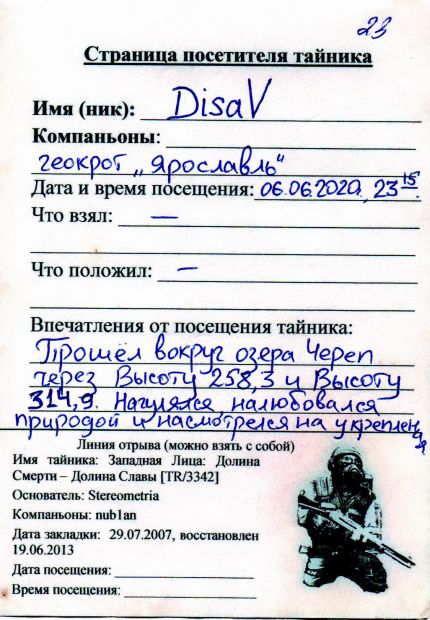 23
Страница посетителя тайника
Имя (ник): DisaV
Компаньоны:
геокрот „Ярославль"
Дата и время посещения: 06.06.2020, 23 15.
Что взял: —
Что положил: —
Впечатления от посещения тайника:
Прошёл вокруг озера Череп
через Высоту 258,3 и Высоту
314,9. Нагулялся, налюбовался
природой и насмотрелся на укрепления
Линия отрыва (можно взять с собой)
Имя тайника: Западная Лица: Долина
Смерти – Долина Славы [TR/3342]
Основатель: Stereometria
Компаньоны: nub1an
Дата закладки: 29.07.2007, восстановлен
19.06.2013
Дата посещения:
Время посещения: